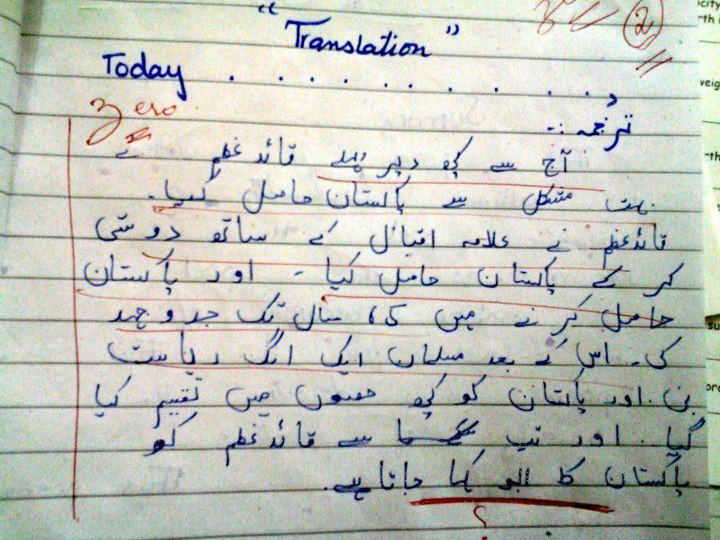 " Translation "
2
Today . . . . . . . . . . . .
Zero
ترجمہ :-
آج سے کچھ دیر پہلے قائد عظم نے
بہت مشکل سے پاکستان حاصل کیا۔
قائد عظم نے علامہ اقبال کے ساتھ دوستی
کر کے پاکستان حاصل کیا ۔ اور پاکستان
حاصل کرنے میں 65 سال تک جدوجہد
کی۔ اس کے بعد مسلمان ایک الگ ریاست
بنی۔ اور پاکستان کو کچھ حصوں میں تقسیم کیا
گیا ۔ اور تب سے قائد عظم کو
پاکستان کا ابو کہا جاتا ہے۔
?